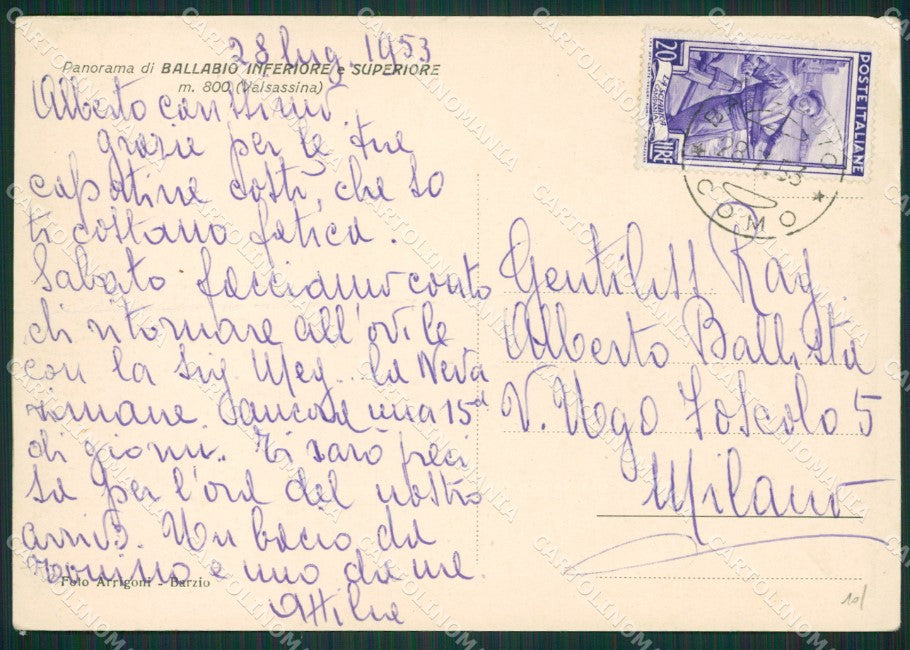 28 lug. 1953
Panorama di BALLABIO INFERIORE e SUPERIORE
m. 800 (Valsassina)
Alberto carissimo,
grazie per le tue
capatine costì, che so
ti costano fatica.
Sabato facciamo conto
di ritornare all'ovile
con la Sig Meg.. la Neva
rimane ancora una 15na
di giorni. Ti sarò preci
sa per l'ora del nostro
arrivo. Un bacio da
e uno da me.
Attilia
Foto Arrigoni - Barzio
POSTE ITALIANE
20
LIRE
BALLABIO
COMO
Gentiliss Rag.
Alberto Ballista
V. Ugo Foscolo 5
Milano
CARTOLINOMANIA